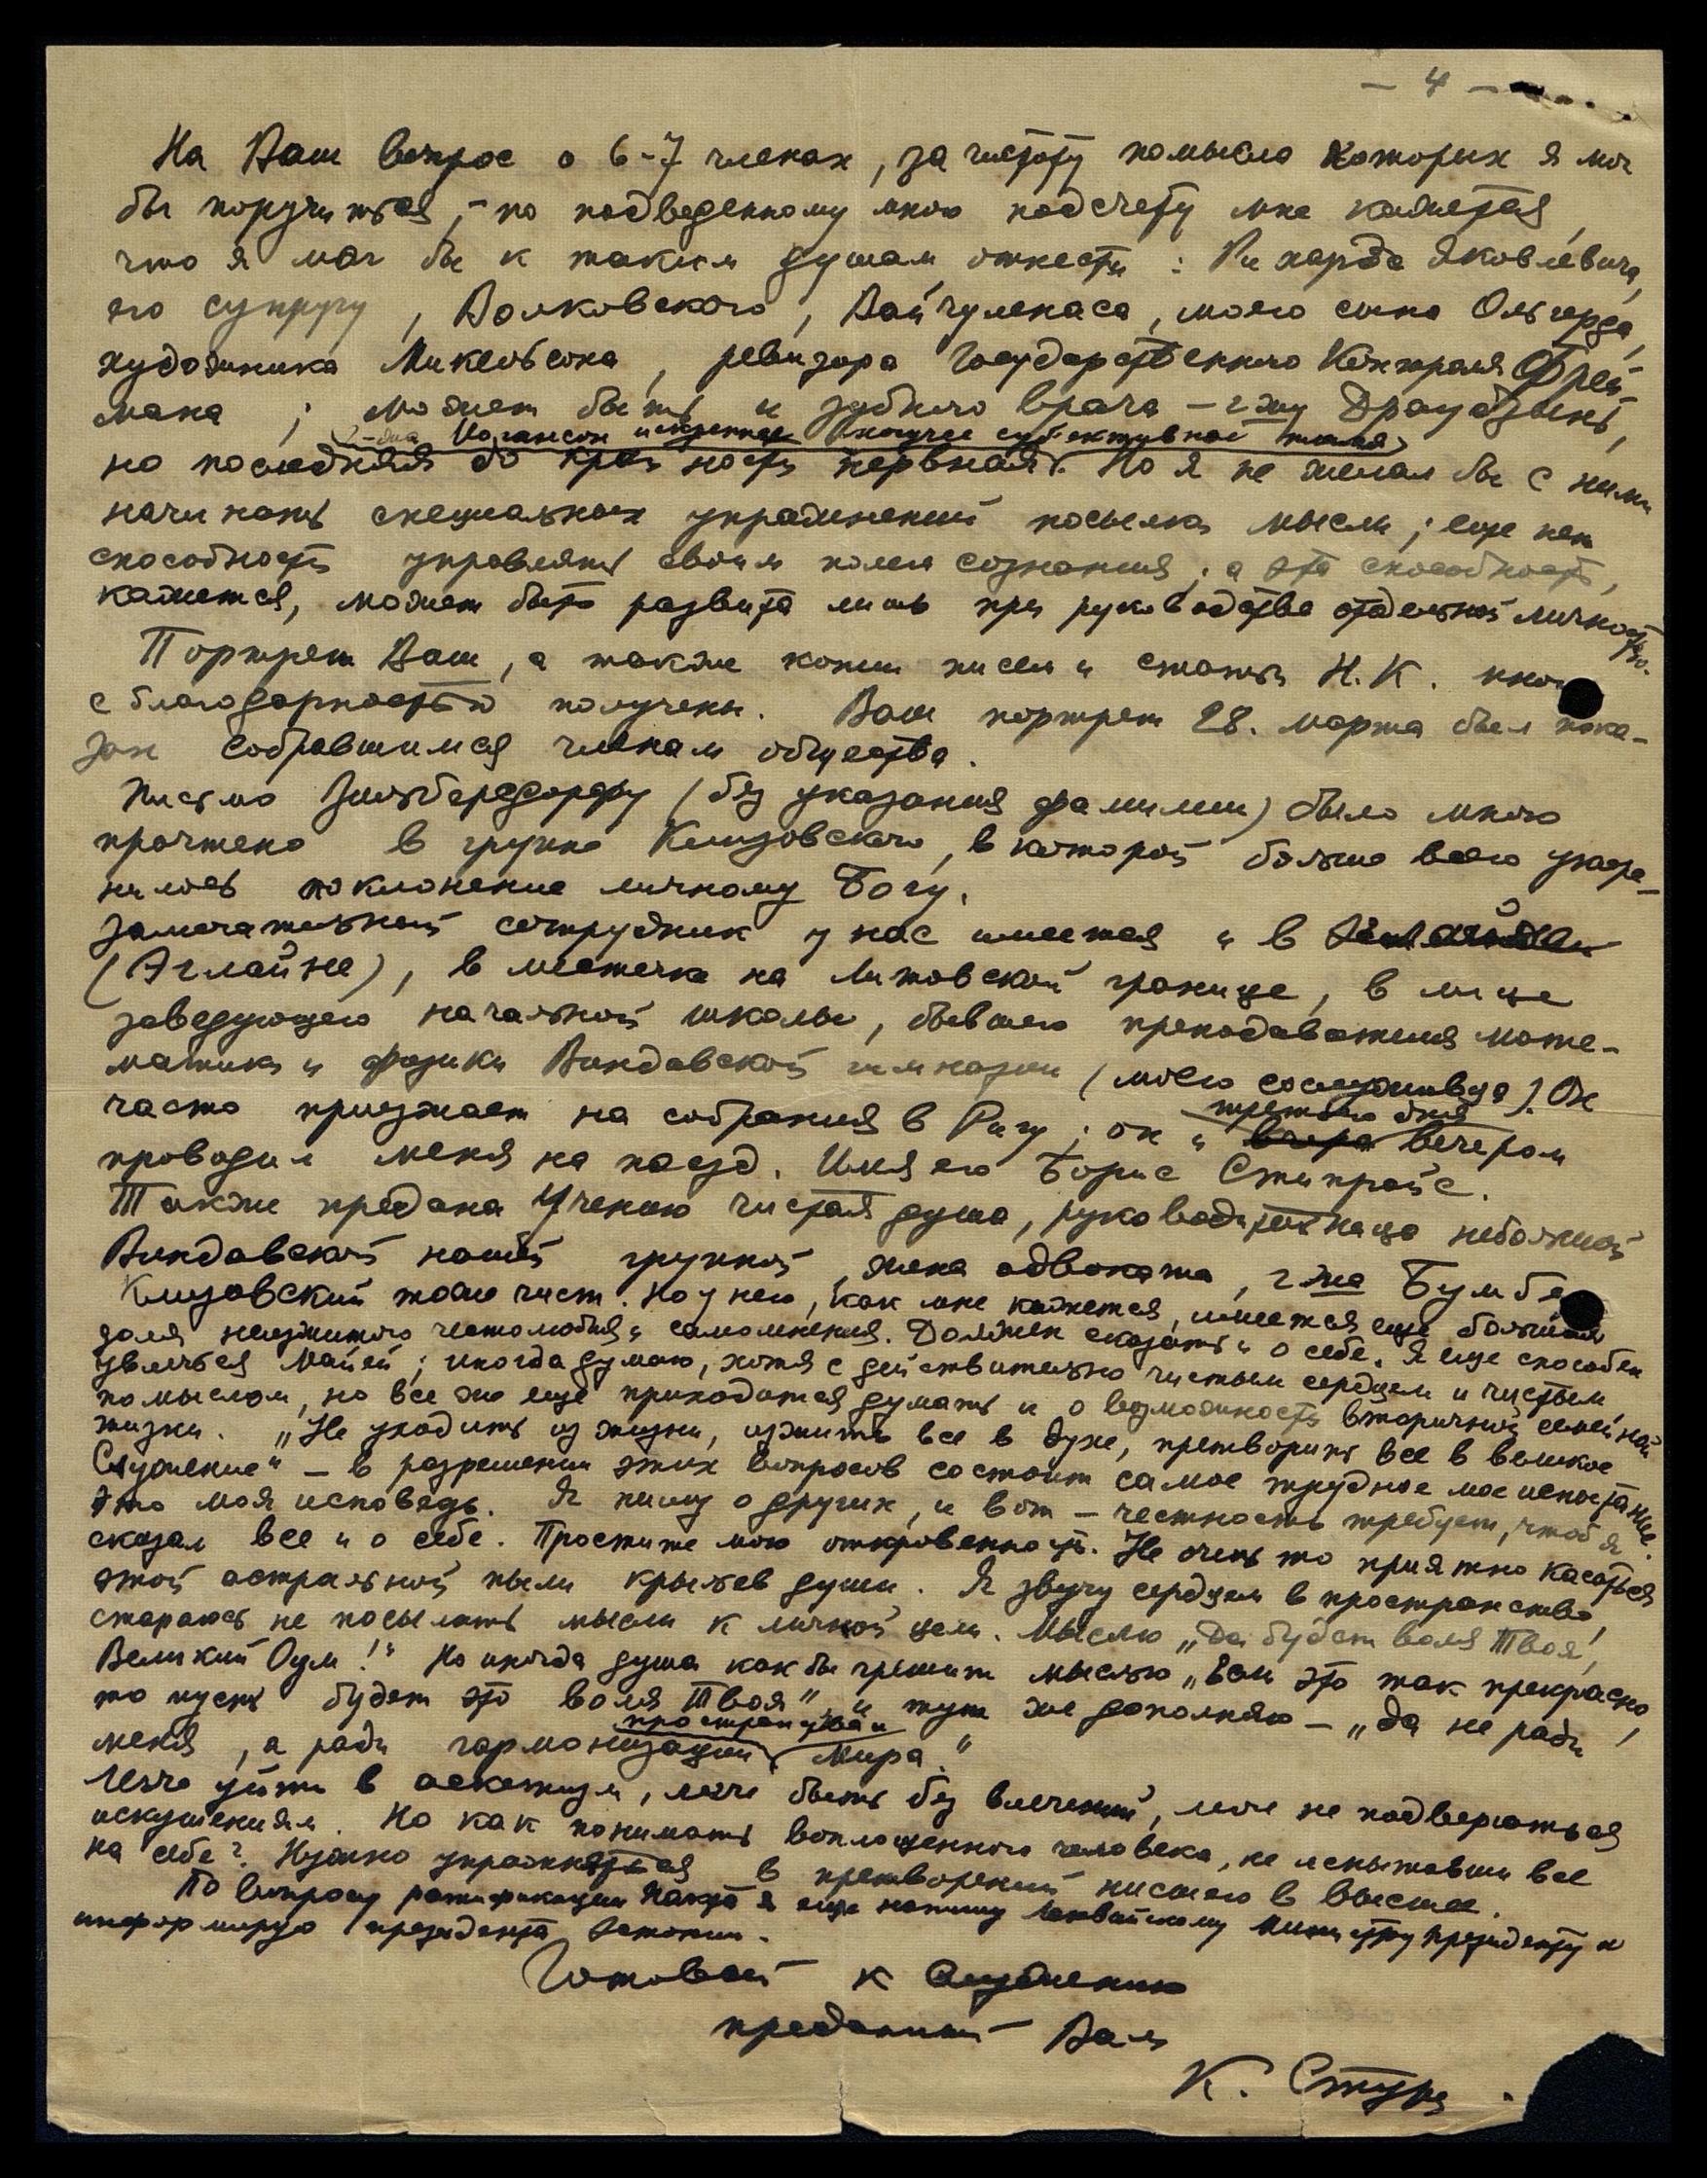 — 4 —
На Ваш вопрос о 6-7 членах, за чистоту помысла которых я мог
бы поручиться, – по подведенному мною подсчету мне кажется,
что я мог бы к таким душам отнести: Рихарда Яковлевича,
его супругу, Волковского, Вайчуленаса, моего сына Ольгерда,
художника Микельсона, ревизора Государственного Контроля Фрей-
мана; может быть и зубного врача – г-жу Драудзынь,
(г-жа Иогансон искренное кипучее субъективное пламя)
но последняя до крайности нервная. Но я не желал бы с ними
начинать специальных упражнений посылки мысли; еще нет
способность управлять своим полем сознания; а эта способность,
кажется, может быть развита лишь при руководстве отдельной личностью.
Портрет Ваш, а также копии писем и статьи Н.К. мною
с благодарностью получены. Ваш портрет 28. марта был пока-
зан собравшимся членам общества.
Письмо Зильберсдорфу (без указания фамилии) было мною
прочтено в группе Клизовского, в которой больше всего укоре-
нилось поклонение личному Богу.
Замечательный сотрудник у нас имеется и в
(Эглайне), в местечке на Литовской границе, в лице
заведующего начальной школы, бывшего преподавателя мате-
матики и физики Виндавской гимназии (моего сослуживца). Он
часто приезжает на собрания в Ригу; он и вчера третьего дня вечером
проводил меня на поезд. Имя его Борис Стипрайс.
Также предана Учению чистая душа, руководительница небольшой
Виндавской нашей группой, жена адвоката, г-жа Бумбе
Клизовский тоже чист. Но у него, как мне кажется, имеется еще большая
доля неизжитого честолюбия и самомнения. Должен сказать и о себе. Я еще способен
увлечься Майей; иногда думаю, хотя с действительно чистым сердцем и чистым
помыслом, но все же еще приходится думать и о возможность вторичной семейной
жизни. „Не уходить из жизни, изжить все в духе, претворить все в великое
Служение" – в разрешении этих вопросов состоит самое трудное мое испытание.
Это моя исповедь. Я пишу о других, и вот – честность требует, чтоб я
сказал все и о себе. Простите мою откровенность. Не очень то приятно касаться
этой астральной пыли крыльев души. Я звучу сердцем в пространство,
стараюсь не посылать мысли к личной цели. Мыслю „Да будет воля Твоя,
Великий Оум!" Но иногда душа как бы грешит мыслью „Если это так прекрасно,
то пусть будет это воля Твоя" и тут же дополняю – „да не ради
меня, а ради гармонизации пространства и Мира."
Легче уйти в аскетизм, легче быть без влечений, легче не подвергаться
искушениям. Но как понимать воплощенного человека, не испытавши все
на себе? Нужно упражняться в претворений низшего в высшее.
По вопросу ратификации Пакта я еще напишу Латвийскому Министру Президенту и
информирую президента Эстонии.
Готовый к Служению
преданный Вам
К. Стурэ